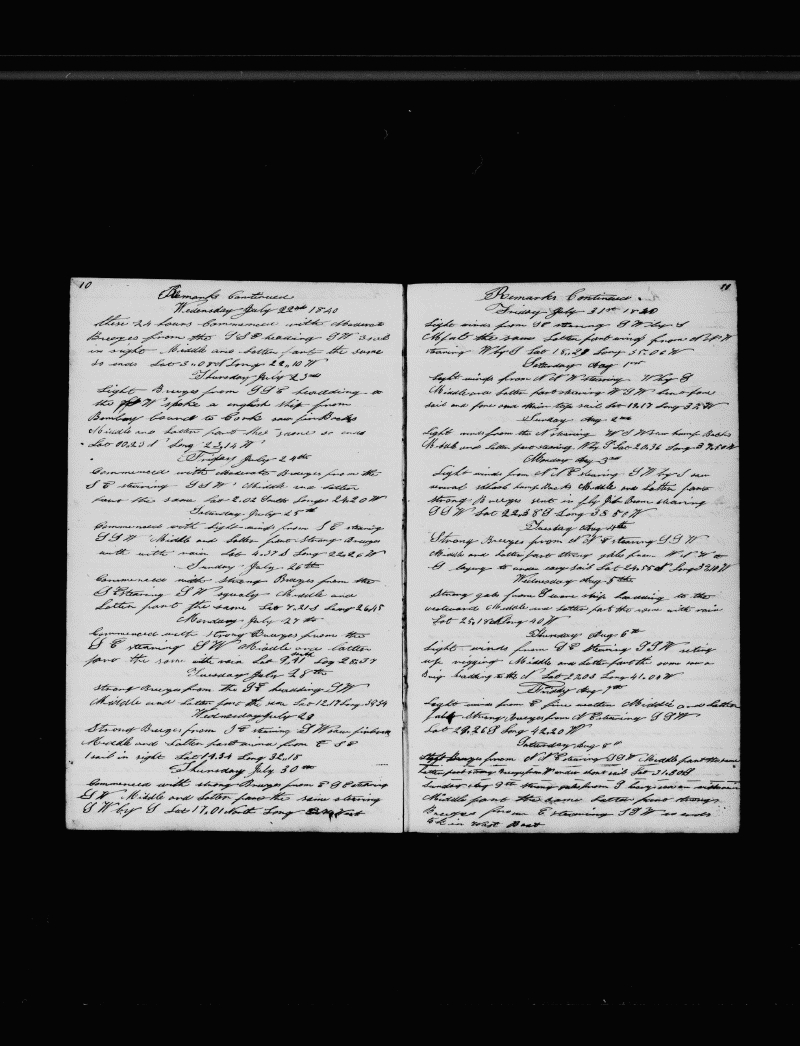 10
Remarks Continued
Wedensday July 22nd 1840
these 24 hours Commenced with Moderate
Breezes from the S S E heading S W 3 sail
in sight Middle and Latter part the same
so ends Lat 3,,08 S Long 22,,10 W
Thursday July 23rd
Light Breezes from S S E headding to
the W spoke a english ship from
Bombay bound to Cork saw finbacks
Middle and Latter part the same so ends
Lat 00,23 Long 23,14 W
Friday July 24th
Commenced with Moderate Breezes from the
S E steering S S W Middle and latter
part the same Lat 2.02 South Long 24,20 W
Saturday July 25th
Commenced with light winds from S E steering
S S W Middle and Latter part Strong Breezes
with rain Lat 4.37 S Long 22,26 W
Sunday July 26th
Commenced with strong Breezes from the
S E steering S W squaly Middle and
Latter part the same Lat 7.21 S Long 26,45
Monday July 27th
Commenced with strong Breezes from the
S E steering S W Middle and latter
part the same with rain Lat 9,41 south Log 28,37
Tuesday July 28th
Strong Breezes from the S E headding S W
Middle and Latter part the same Lat 12,17 Long 30,34
Wednesday July 29
Strond Breezes from S E steering S W saw finback
Middle and Latter part winds from E S E
1 sail in sight Lat 14,34 Long 32,18
Thursday July 30th
Commenced with strong Breezes from E S E steering
S W Middle and Latter part the same steering
S W by S Lat 17,01 South Long West
11
Remarks Continued
Friday July 31st 1840
Light winds from SE steering S W by S
M part the same Latter part winds from N N W
steering W by S Lat 18,29 Long 35,06 W
Saturday Aug 1st
Light winds from N N W steering W by S
Middle and Latter part steering W S W
sail and fore and main top sail Lat 19,17
Sunday Aug 2nd
Light winds from the N steering W S W saw hump Backs
Middle and Latter part steering W by S Lat 20,36 Long
Monday Aug 3rd
Light winds from N N E steering S W by S saw
several school hump Backs Middle and Latter part
strong Breezes sent in fly Jib Boom steering
S S W Lat 22,38 S Long 38,50 W
Tuesday Aug 4th
Strong Breezes from N N E steering S S W
Middle and Latter part strong gales from
S laying to under easy sail Lat
Wednesday Aug 5th
Strong gales from S wore ship headding to the
westward Middle and Latter part the same with rain
Lat 25,18 Long 40 W
Thursday Aug 6th
Light winds from S E steering S S W seting
up rigging Middle and Latter part the same saw a
Brig headding to the N Lat 2203 Long 41.00 W
Friday Aug 7th
Light winds from E fine weather Middle and Latter
part Strong Breezes from N E steering S S W
Lat 29,26 S Long 42,20 W
Saturday Aug 8th
Breezes from N N E steering S S W Middle part the same
Latter part strong Breezes from Lat 31.30 S
Sunday Aug 9th strong gales from S
Middle part the same Latter part strong
Breezes from E steering S S W so ends